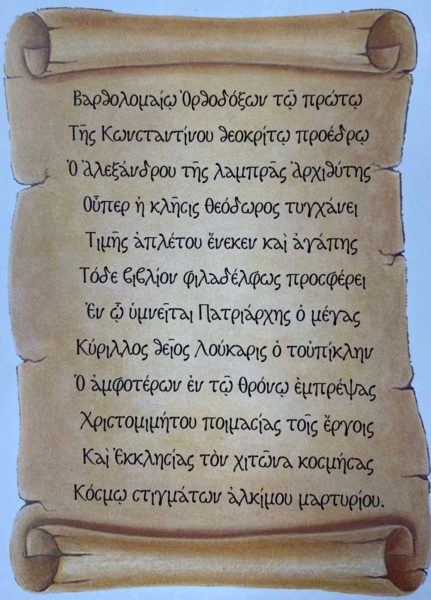 Βαρθολομαίῳ Ὀρθοδόξων τῷ πρώτῳ
Τῆς Κωνσταντίνου θεοκρίτῳ προέδρῳ
Ὁ Ἀλεξάνδρου τῆς λαμπρᾶς ἀρχιθύτης
Οὗπερ ἡ κλῆσις θεόδωρος τυγχάνει
Τιμῆς ἀπλέτου ἕνεκεν καὶ ἀγάπης
Τόδε βιβλίον φιλαδέλφως προσφέρει
Ἐν ᾧ ὑμνεῖται Πατριάρχης ὁ μέγας
Κύριλλος θεῖος Λούκαρις ὁ τοὐπίκλην
Ὁ ἀμφοτέρων ἐν τῷ θρόνῳ ἐμπρέψας
Χριστομιμήτου ποιμασίας τοῖς ἔργοις
Καὶ Ἐκκλησίας τὸν χιτῶνα κοσμήσας
Κόσμῳ στιγμάτων ἀλκίμου μαρτυρίου.